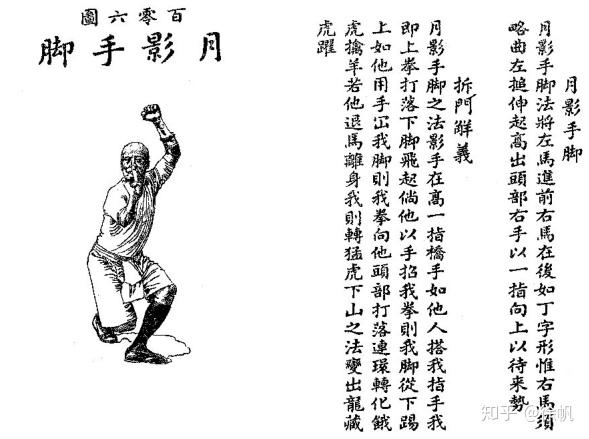 月影手脚
月影手脚法將左馬進前右馬在後如丁字形惟右馬須
略曲左搥伸起高出頭部右手以一指向上以待來勢
拆門解義
月影手脚之法影手在高一指橋手如他人搭我指手我
即上拳打落下脚飛起倘他以手招我拳則我脚從下踢
上如他用手冚我脚則我拳向他頭部打落連環轉化餓
虎擒羊若他退馬離身我則轉猛虎下山之法變出龍藏
虎躍
百零六圖
月影手脚
知乎 @徐帆